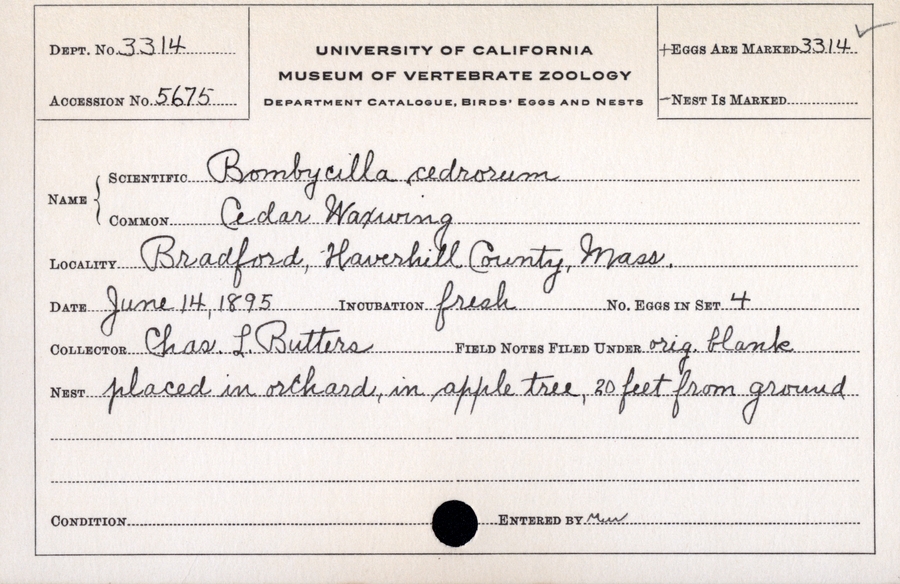 DEPT. No. 3314
ACCESSION No. 5675
UNIVERSITY OF CALIFORNIA
MUSEUM OF VERTEBRATE ZOOLOGY
DEPARTMENT CATALOGUE, BIRDS' EGGS AND NESTS
+EGGS ARE MARKED 3314
-NEST IS MARKED
NAME
SCIENTIFIC Bombycilla cedrorum
COMMON Cedar Waxwing
LOCALITY Bradford, Haverhill County, Mass.
DATE June 14, 1895 INCUBATION fresh NO. EGGS IN SET 4
COLLECTOR Chas. L. Butters FIELD NOTES FILED UNDER orig. blank
NEST placed in orchard, in apple tree, 20 feet from ground
CONDITION ENTERED BY